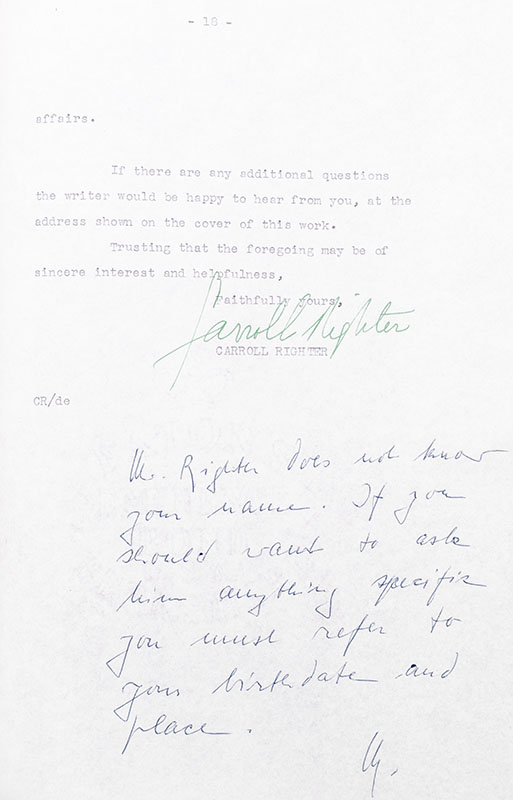 - 18 -
affairs.
If there are any additional questions
the writer would be happy to hear from you, at the
address shown on the cover of this work.
Trusting that the foregoing may be of
sincere interest and helpfulness,
Faithfully yours,
Carroll Righter
CARROLL RIGHTER
CR/de
Mr. Righter does not know
your name. If you
should want to ask
him anything specific
you must refer to
your birthdate and
place.